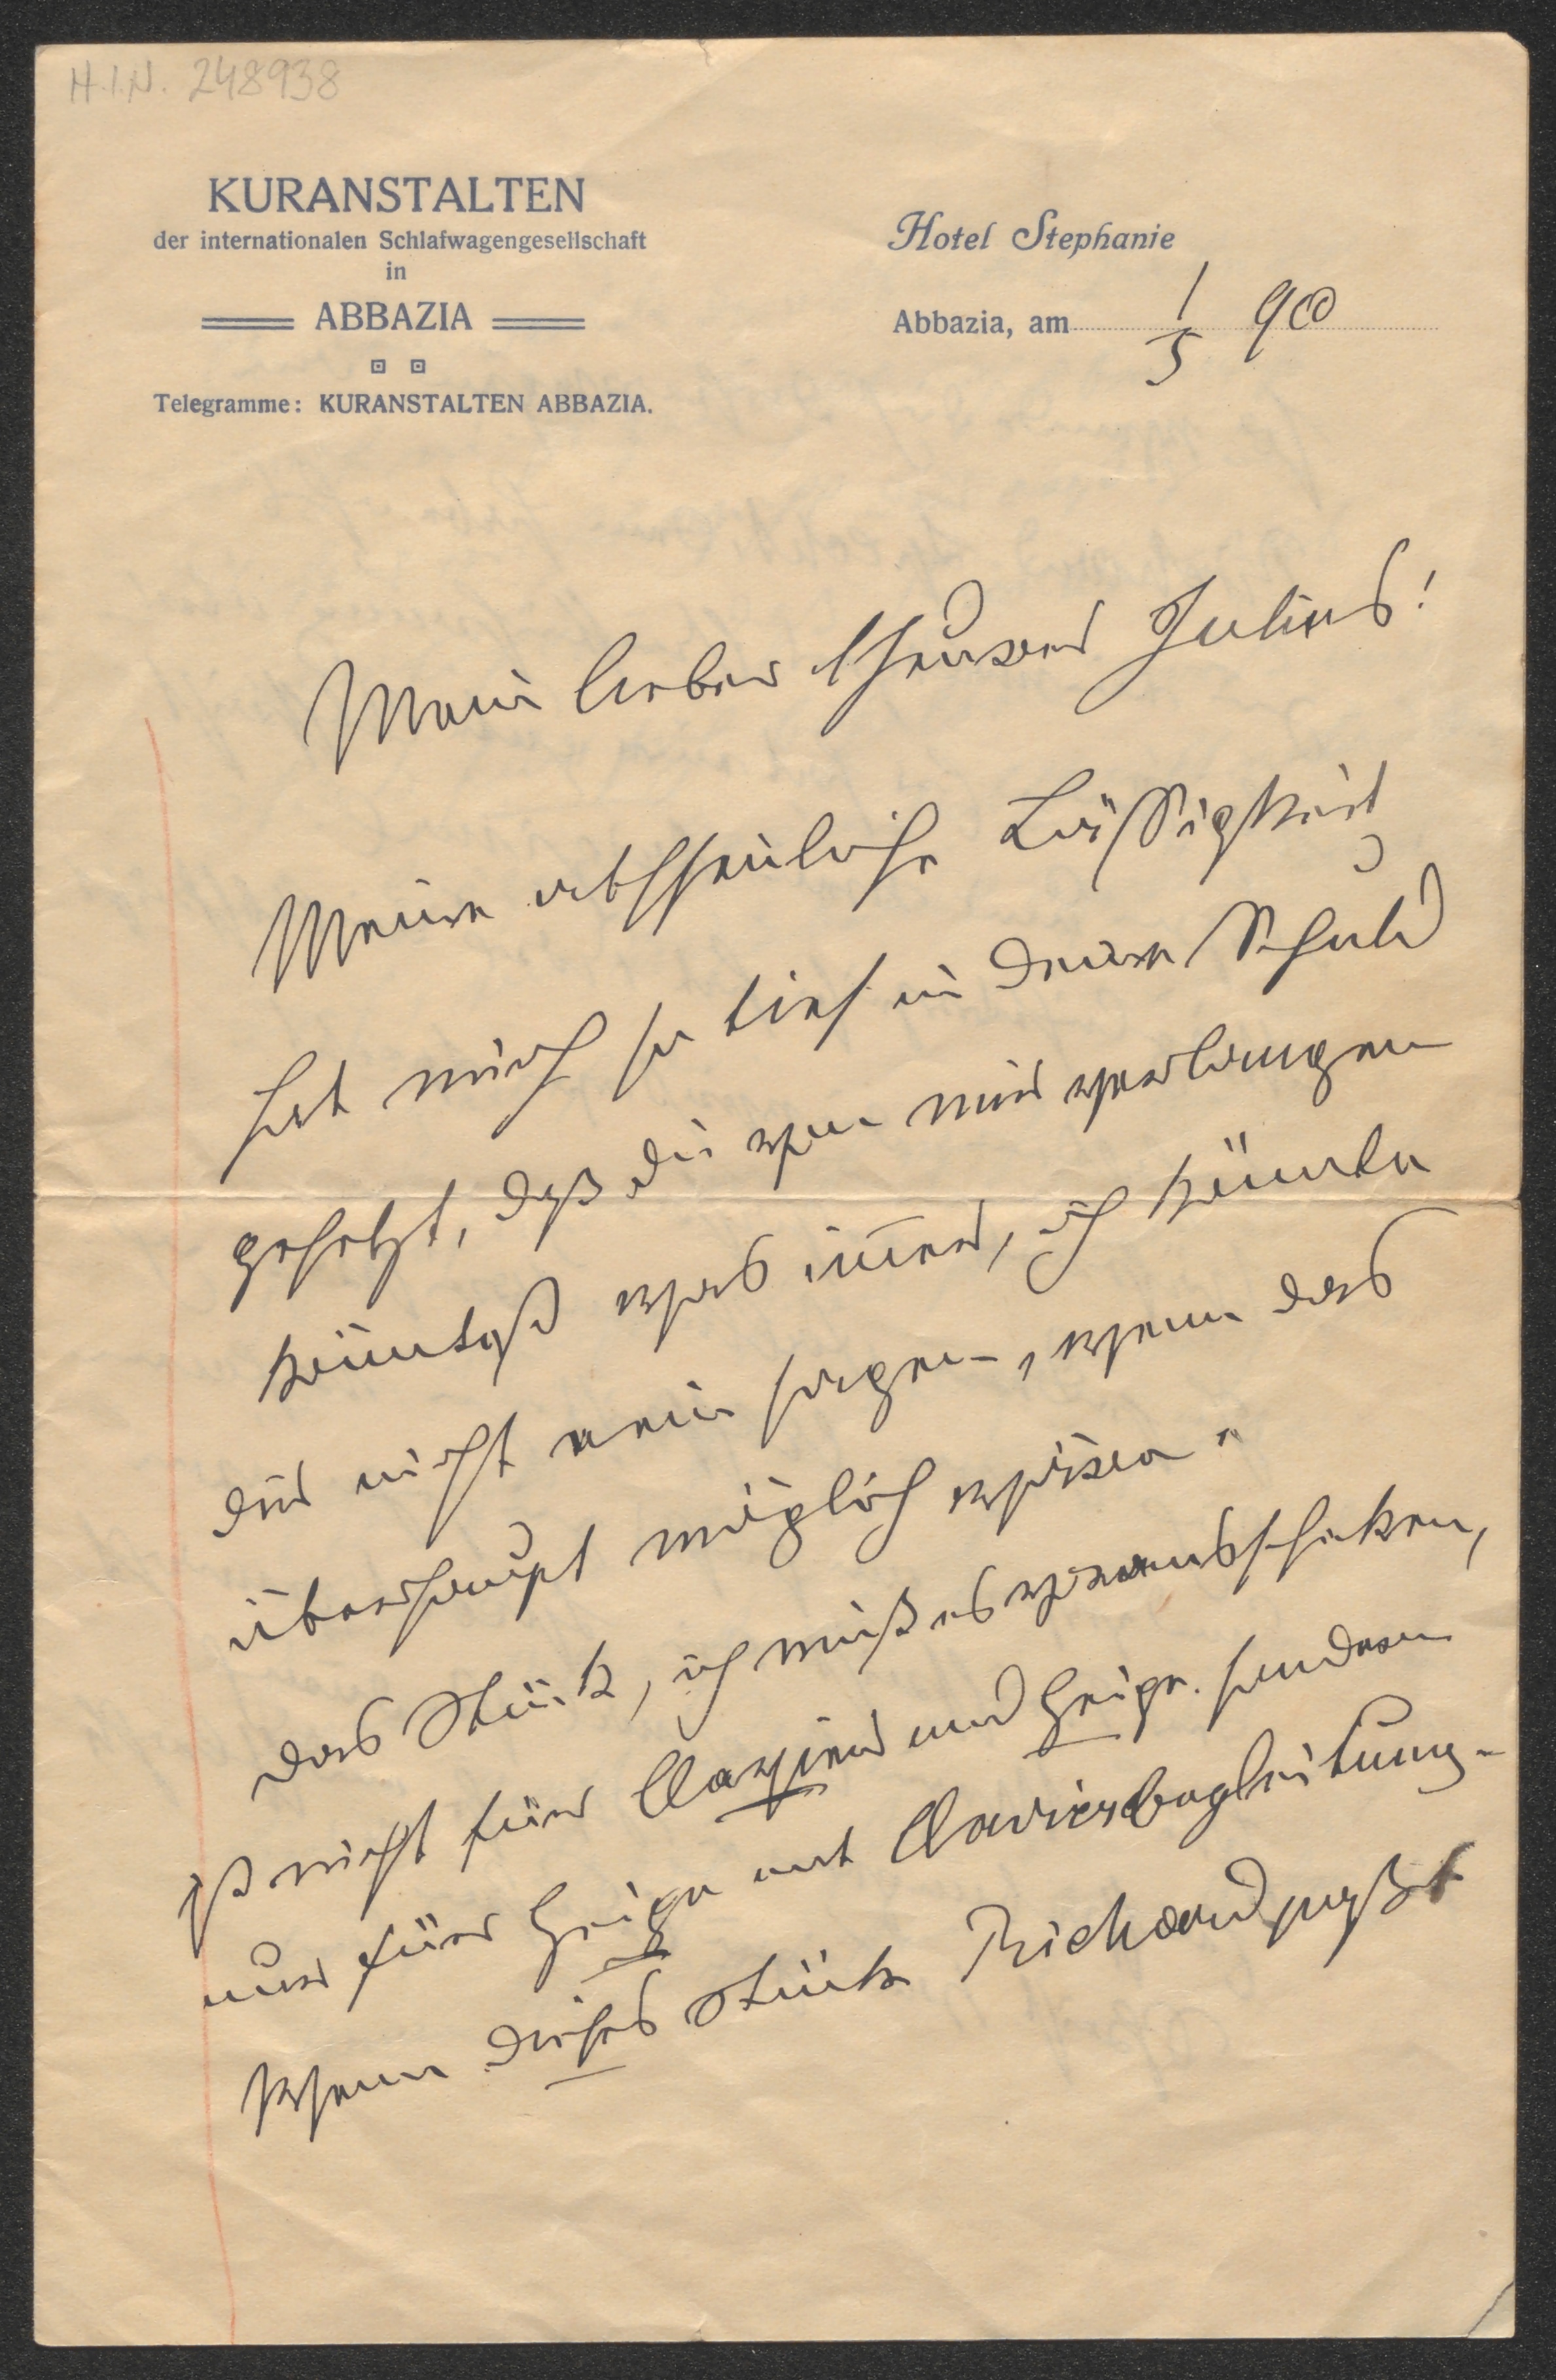 H.I.N. 248938
KURANSTALTEN
der internationalen Schlafwagengesellschaft
in
ABBAZIA
Telegramme: KURANSTALTEN ABBAZIA.
Hotel Stephanie
Abbazia, am 1/5 900
Mein lieber theurer Julius!
Meine abscheuliche Lässigkeit
hat mich so tief in Deine Schuld
gesetzt, daß Du von mir verlangen
könntest was im̅er, ich könnte
Dir nicht nein sagen, wenn das
überhaupt möglich wäre.
Das Stück, ich muß es vorausschicken,
ist nicht für Clavier und Geige. sondern
nur für Geige mit Clavierbegleitung.
Wenn dieses Stück Richard paßt